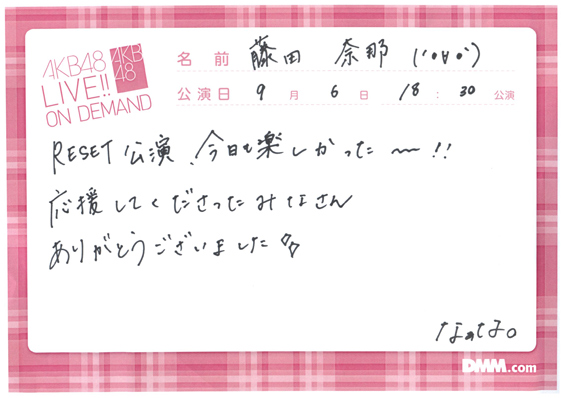 AKB48
LIVE!!
ON DEMAND
AKB
48
名前 藤田 奈那 ('•∀•')
公演日 9月 6日 18:30 公演
RESET 公演、今日も楽しかった〜!!
応援してくださったみなさん
ありがとうございました
なぁな。
DMM.com